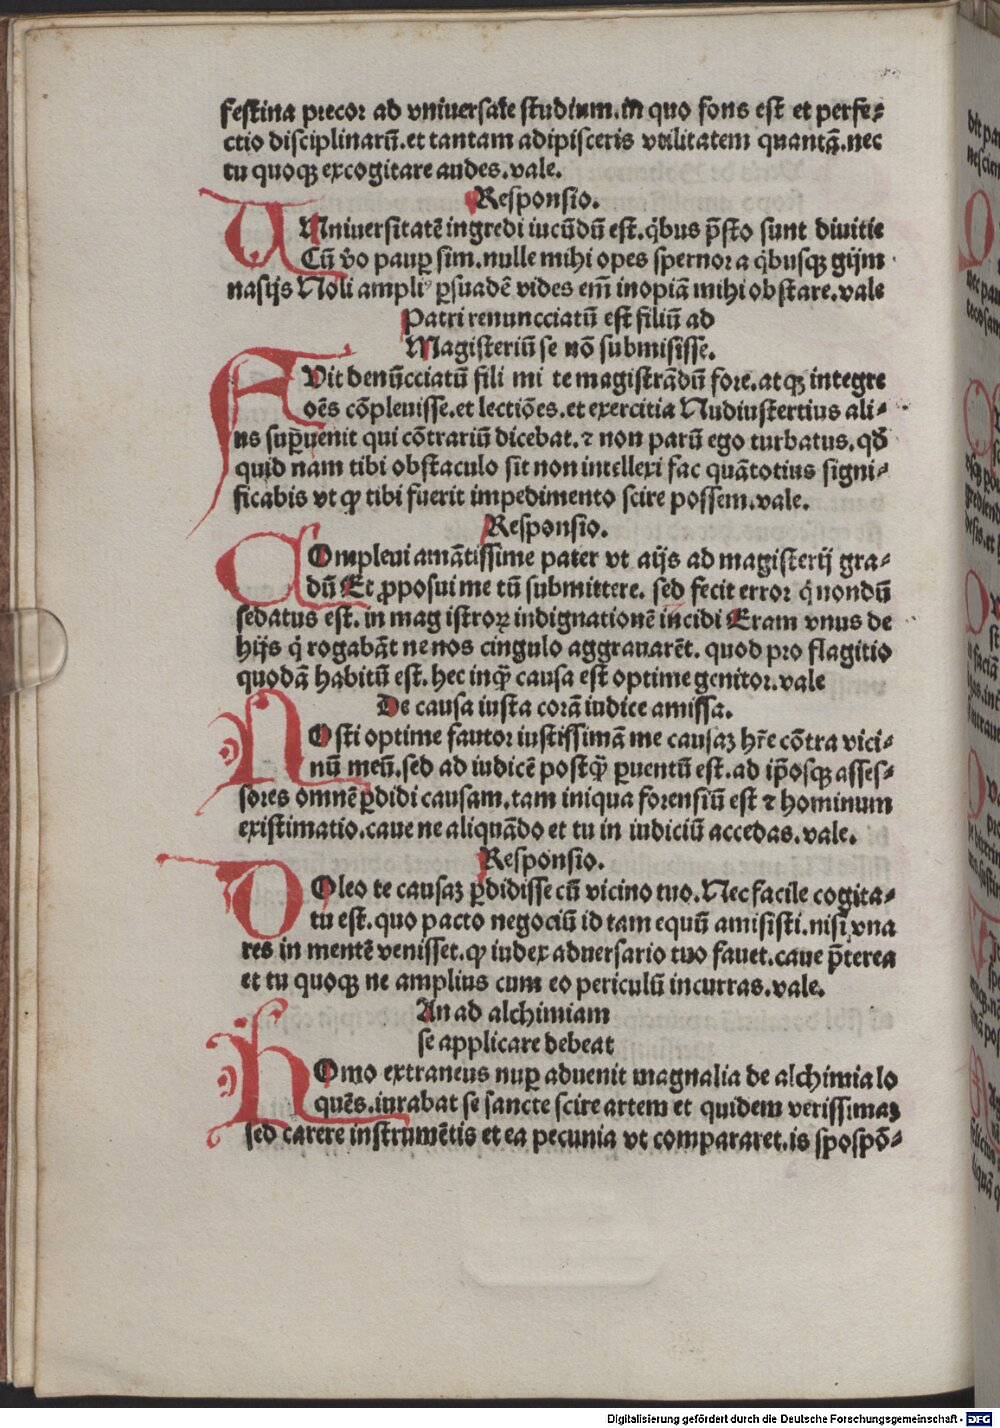 festina precor ad vniuersale studium.in quo fons est et perfe-
ctio disciplinarū.et tantam adipisceris vtilitatem quantā.nec
tu quoqꝫ excogitare audes.vale.
Responsio.
VNiuersitatē ingredi iucūdū est.q̇bus p̄sto sunt diuitie
Cū v̄o paup̱ sim.nulle mihi opes spernor a q̇busqꝫ gijm
nasijs Noli ampliꝰ ꝑsuadē vides em̄ inopiā mihi obstare.vale
Patri renuncciatū est filiū ad
Magisteriū se nō submisisse.
FVit denūcciatū fili mi te magistrādū fore.atqꝫ integre
oēs cōpleuisse.et lectiōes.et exercitia Nudiustertius ali-
us suꝑuenit qui cōtrariū dicebat.⁊ non parū ego turbatus.qđ
quid nam tibi obstaculo sit non intellexi fac quātotius signi-
ficabis vt ꝙ tibi fuerit impedimento scire possem.vale.
Responsio.
COmpleui amātissime pater vt aijs ad magisterij gra-
dū Et ꝓposui me tū submittere. sed fecit error q̇ nondū
sedatus est. in magistroꝝ indignationē incidi Eram vnus de
hijs q̇ rogabāt ne nos cingulo aggrauarēt. quod pro flagitio
quodā habitū est. hec inꝙ̄ causa est optime genitor.vale
De causa iusta corā iudice amissa.
NOsti optime fautor iustissimā me causaꝫ hr̄e cōtra vici-
nū meū.sed ad iudicē postꝙ̄ ꝑuentū est.ad ip̄osqꝫ asses-
sores omnē ꝑdidi causam.tam iniqua forensiū est ⁊ hominum
existimatio.caue ne aliquādo et tu in iudiciū accedas.vale.
Responsio.
DOleo te causaꝫ ꝑdidisse cū vicino tuo.Nec facile cogita-
tu est.quo pacto negociū id tam equū amisisti.nisi vna
res in mentē venisset.ꝙ iudex aduersario tuo fauet.caue p̄terea
et tu quoqꝫ ne amplius cum eo periculū incurras.vale.
An ad alchimiam
se applicare debeat
HOmo extraneus nuꝑ aduenit magnalia de alchimia lo
quēs.iurabat se sancte scire artem et quidem verissimaꝫ
sed carere instrumētis et ea pecunia vt compararet.is spospō-
Digitalisierung gefördert durch die Deutsche Forschungsgemeinschaft - DFG